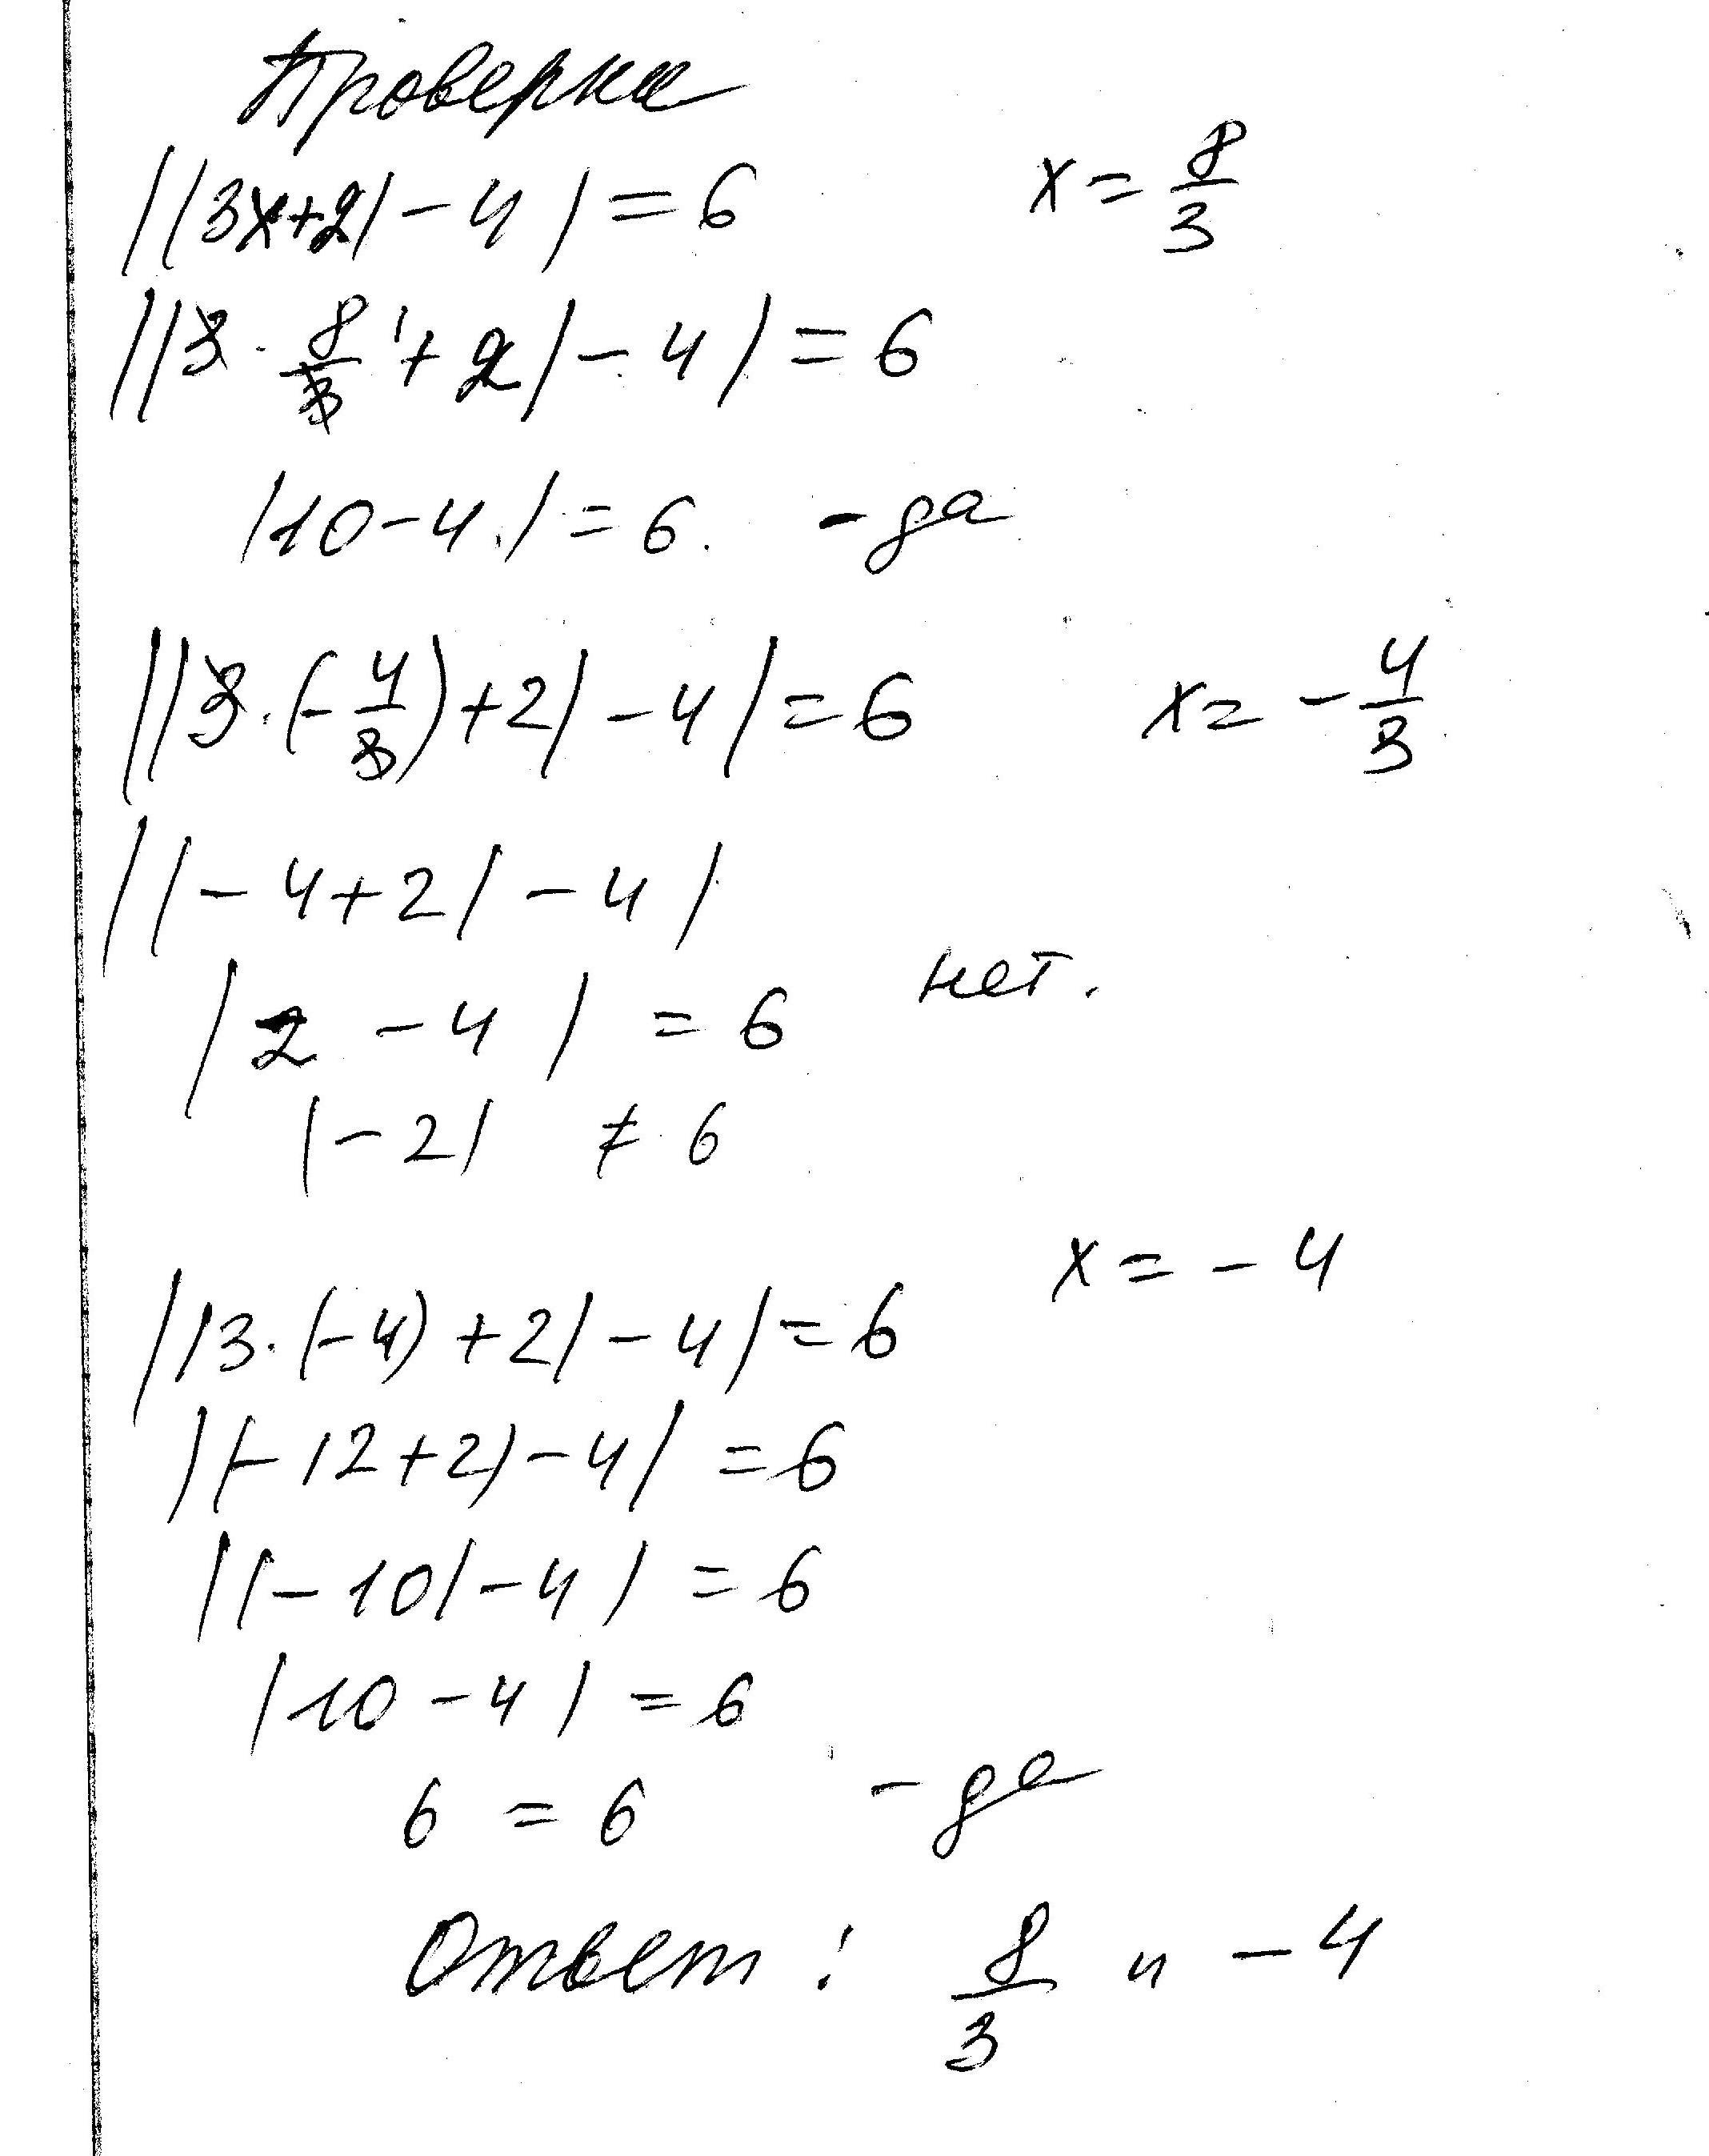 Проверка
||3x+2|-4|=6 x=8/3
||3·8/3+2|-4|=6
|10-4|=6. -да
||3·(-4/3)+2|-4|=6 x=-4/3
||-4+2|-4|
|2-4|=6 нет.
|-2|≠6
x=-4
||3·(-4)+2|-4|=6
||-12+2|-4|=6
||-10|-4|=6
|10-4|=6
6=6 -да
Ответ: 8/3 и -4